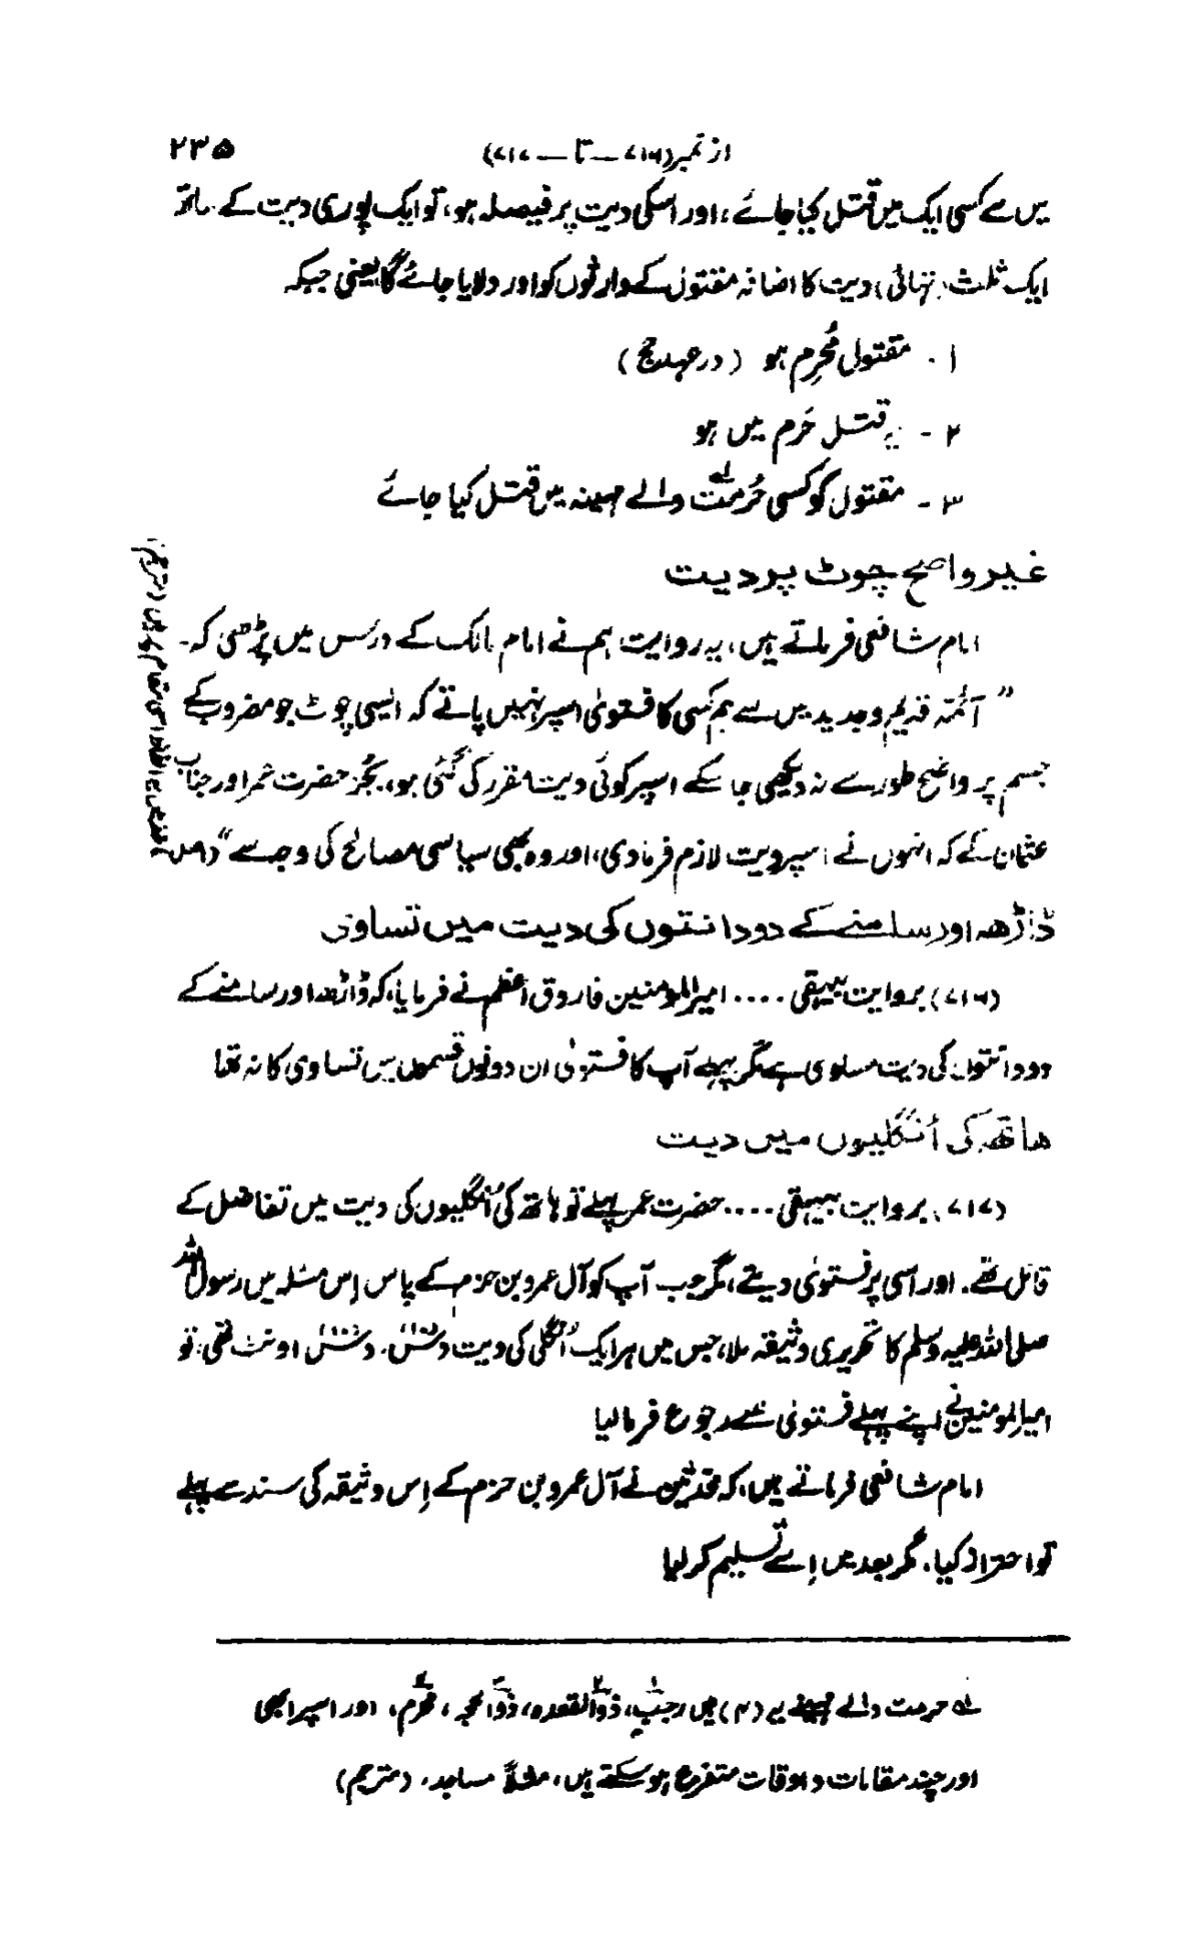 از نمبر (۷۱۶ — تا — ۷۱۷) ۲۳۵
میں سے کسی ایک میں قتل کیا جائے، اور اسکی دیت پر فیصلہ ہو، تو ایک پوری دیت کے ساتھ
ایک ثلث (تہائی) دیت کا اضافہ مقتول کے وارثوں کو اور دلایا جائے گا یعنی جبکہ
۱۔ مقتول مُحرِم ہو (در عہد حج)
۲۔ یہ قتل حَرم میں ہو
۳۔ مقتول کو کسی حُرمت والے مہینہ میں قتل کیا جائے
غیر واضح چوٹ پر دیت
امام شافعی فرماتے ہیں، یہ روایت ہم نے امام مالک کے درس میں پڑھی کہ۔
”آئمہ قدیم و جدید میں سے ہم کسی کا فتویٰ اسپر نہیں پاتے کہ ایسی چوٹ جو مضروب کے
جسم پر واضح طور سے نہ دیکھی جا سکے اسپر کوئی دیت مقرر کی گئی ہو، بجُز حضرت عمر اور جناب
عثمان کے کہ انہوں نے اسپر دیت لازم فرما دی، اور وہ بھی سیاسی مصالح کی وجہ سے“
ڈاڑھ اور سامنے کے دو دانتوں کی دیت میں تساوی
(۷۱۶) بروایت بیہقی .... امیر المومنین فاروق اعظم نے فرمایا، کہ ڈاڑھ اور سامنے کے
دو دانتوں کی دیت مساوی ہے مگر پہلے آپ کا فتویٰ ان دونوں قسموں میں تساوی کا نہ تھا
ہاتھ کی اُنگلیوں میں دیت
(۷۱۷) بروایت بیہقی .... حضرت عمر پہلے تو ہاتھ کی اُنگلیوں کی دیت میں تفاضل کے
قائل تھے۔ اور اسی پر فتویٰ دیتے، مگر جب آپ کو آل عمرو بن حزم کے پاس اِس مسئلہ میں رسول اللہ
صلی اللہ علیہ وسلم کا تحریری وثیقہ ملا، جس میں ہر ایک اُنگلی کی دیت دس، دس اونٹ تھی، تو
امیر المومنین نے اپنے پہلے فتویٰ سے رجوع فرما لیا
امام شافعی فرماتے ہیں، کہ محدثین نے آل عمرو بن حزم کے اِس وثیقہ کی سند سے پہلے
تو احتراز کیا۔ مگر بعد میں اِسے تسلیم کر لیا
لہ حرمت والے مہینے یہ (۴) ہیں رجب، ذوالقعدہ، ذوالحجہ، محرّم، اور اسپر ابھی
اور چند مقامات و اوقات متفرع ہو سکتے ہیں، مثلاً مساجد، (مترجم)